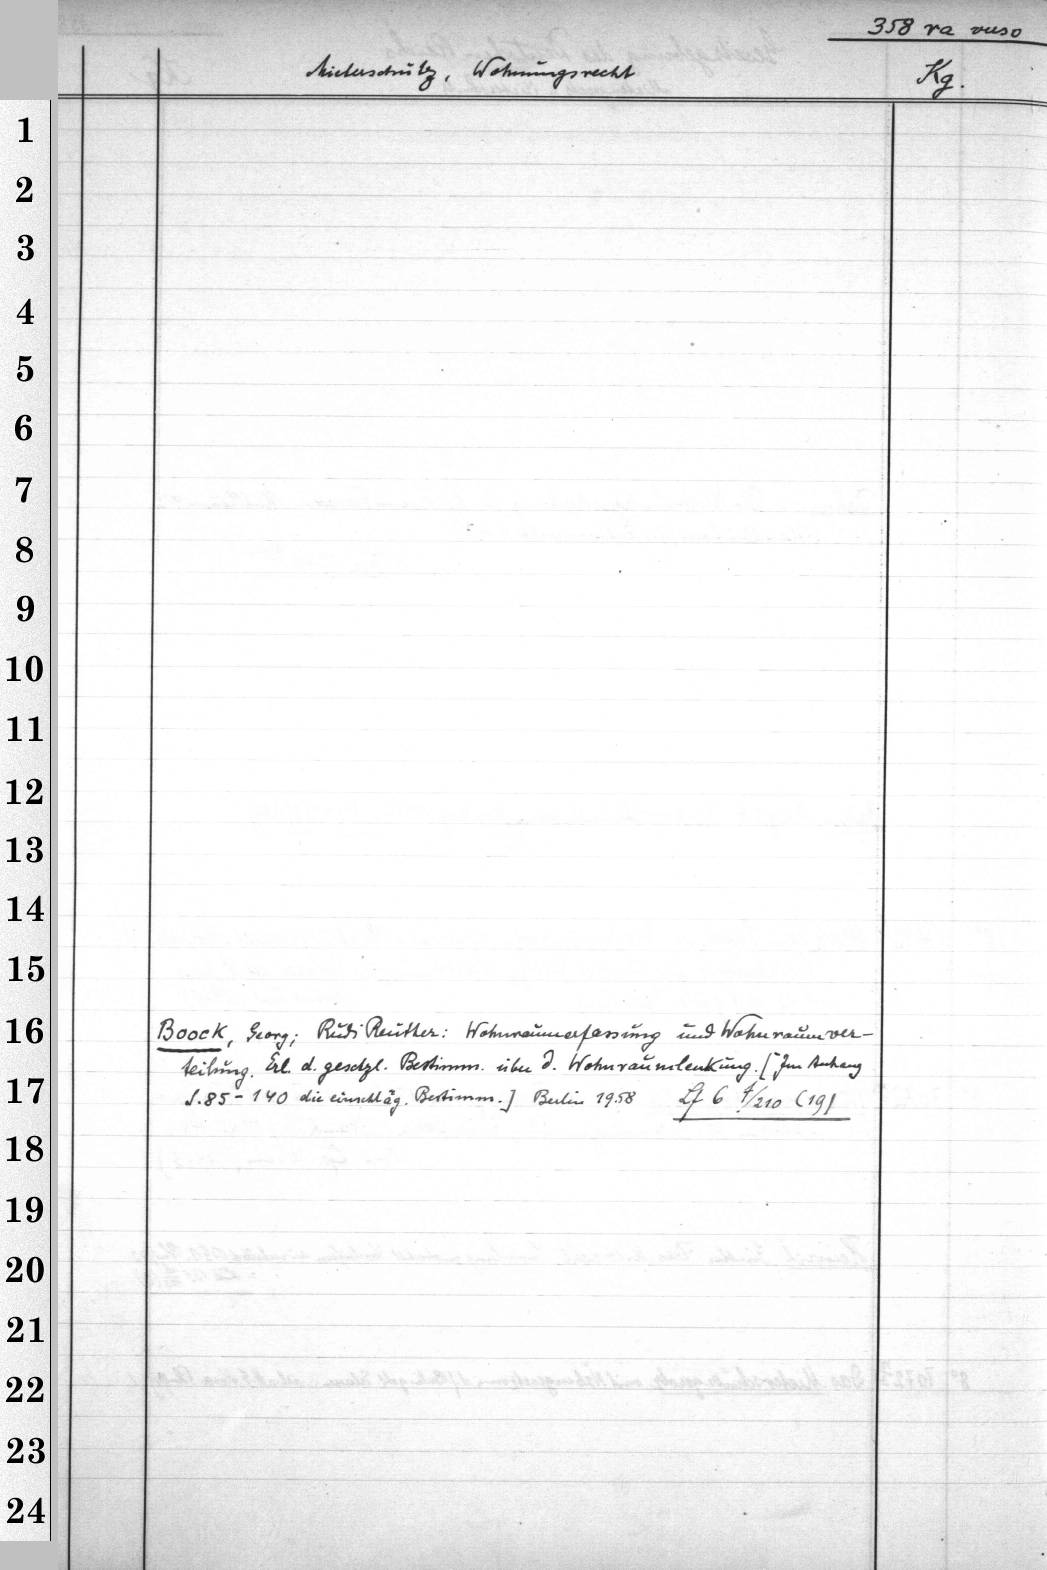 358 ra verso
Mieterschutz, Wohnungsrecht
Kg.
1
2
3
4
5
6
7
8
9
10
11
12
13
14
15
16
Boock, Georg; Rudi Reuther: Wohnraumerfassung und Wohnraumver-
teilung. Erl. d. gesetzl. Bestimm. über d. Wohnraumlenkung. [Im Anhang
17
S. 85-140 die einschläg. Bestimm.] Berlin 1958 Lf 6 4/210 (19)
18
19
20
21
22
23
24